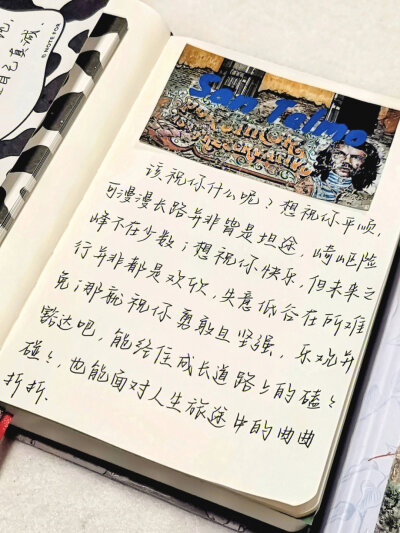 NOTE FOR
San Telmo
该祝你什么呢？想祝你平顺，
可漫漫长路并非皆是坦途，崎岖险
峰不在少数；想祝你快乐，但未来之
行并非都是欢欣，失意低谷在所难
免；那就祝你勇敢且坚强，乐观并
豁达吧，能经住成长道路上的磕々
碰々，也能面对人生旅途中的曲曲
折折.